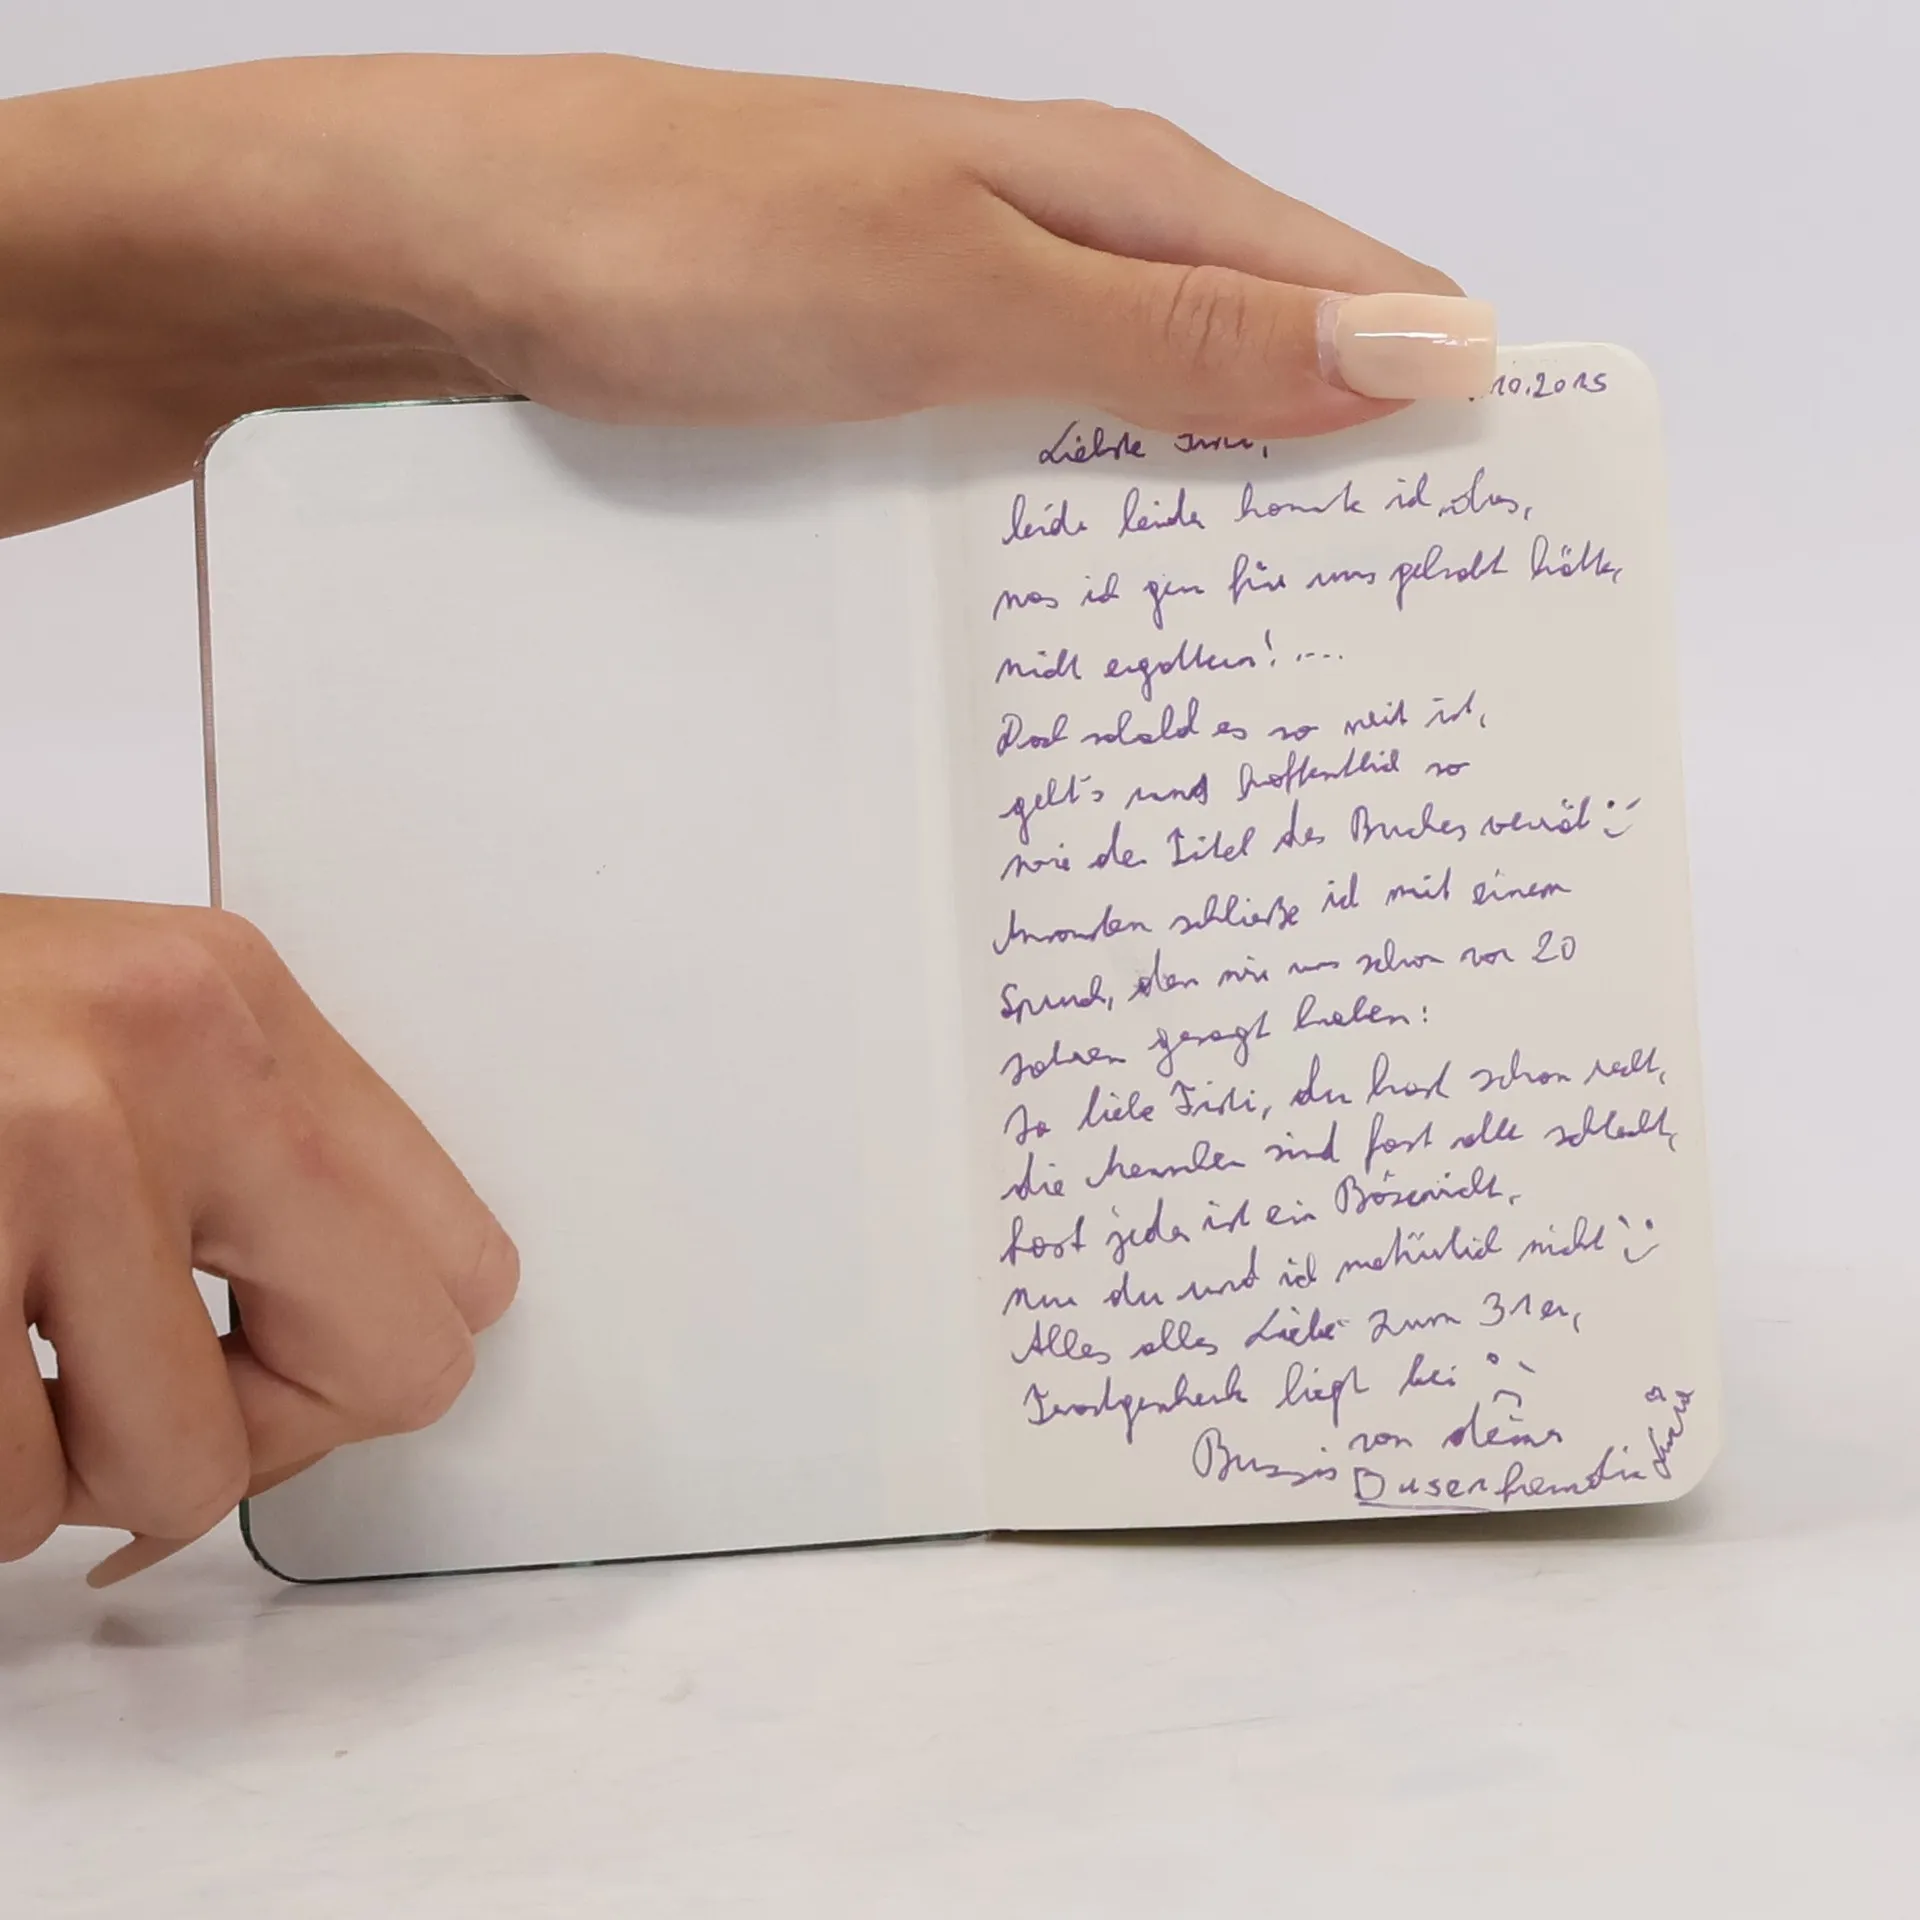 .10.2015
Liebste
leider leider konnte ich das,
was ich gern für uns gehabt hätte,
nicht ergattern! ....
Doch sobald es so weit ist,
geht's uns hoffentlich so
wie der Titel des Buches verrät :)
Ansonsten schließe ich mit einem
Spruch, den wir uns schon vor 20
Jahren gesagt haben:
Ja liebe Fisti, du hast schon recht,
die Menschen sind fast alle schlecht,
fast jeder ist ein Bösewicht,
nur du und ich natürlich nicht :)
Alles alles Liebe zum 31er,
Trostgeschenk liegt bei :)
Bussis von deiner
Busenfreundin